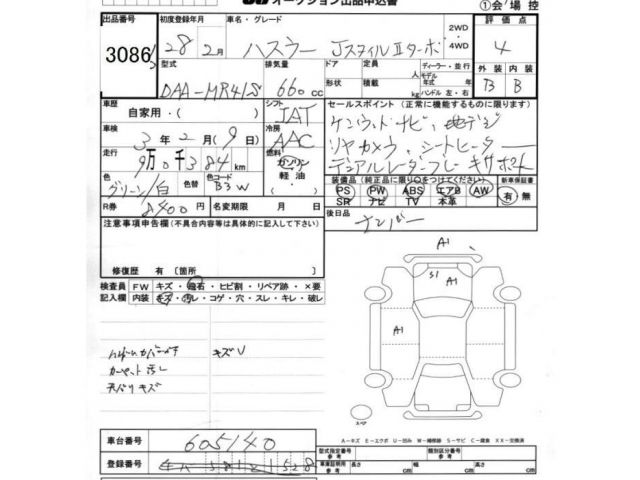 オークション出品申込書 ①会場控
出品番号 初度登録年月 車名・グレード 2WD・4WD 評価点
3086 28年2月 ハスラー JスタイルⅡターボ 4
型式 排気量 ドア 定員 ディーラー・並行 外装 内装
DAA-MR41S 660cc 形状 積載 kg モデル年式 年 ハンドル 左・右 B B
車歴 自家用・( ) シフト セールスポイント(正常に機能するものに限ります)
IAT ケンウッドナビ、地デジ
車検 3年2月(9日) 冷房 AAC リヤカメラ、シートヒーター
走行 9万0千384km 燃料 ガソリン・軽油・ デュアルレーダーブレーキサポート
色 色替 色コード 装備品(純正品に限り○をつけてください) 新車保証書
グリーン/白 B3W PS PW ABS エアB AW 有・無
SR ナビ TV 本革
R券 8400円 名変期限 月 日 後日品 ナンバー
注意事項申告欄(不具合内容等は具体的に記入して下さい)
修復歴 有 〔箇所 〕
検査員記入欄 FW キズ・飛石・ヒビ割・リペア跡・×要
内装 キズ・汚れ・コゲ・穴・スレ・キレ・破レ
A1
S1 A1
A1
キズV
カーペット汚し
天バリキズ
スペア
A-キズ E-エクボ U-凹み W-補修跡 S-サビ C-腐食 XX-交換済
車台番号 605140
型式指定番号 参考 類別区分番号 参考
登録番号
車庫証明用 参考 長さ cm 幅 cm 高さ cm